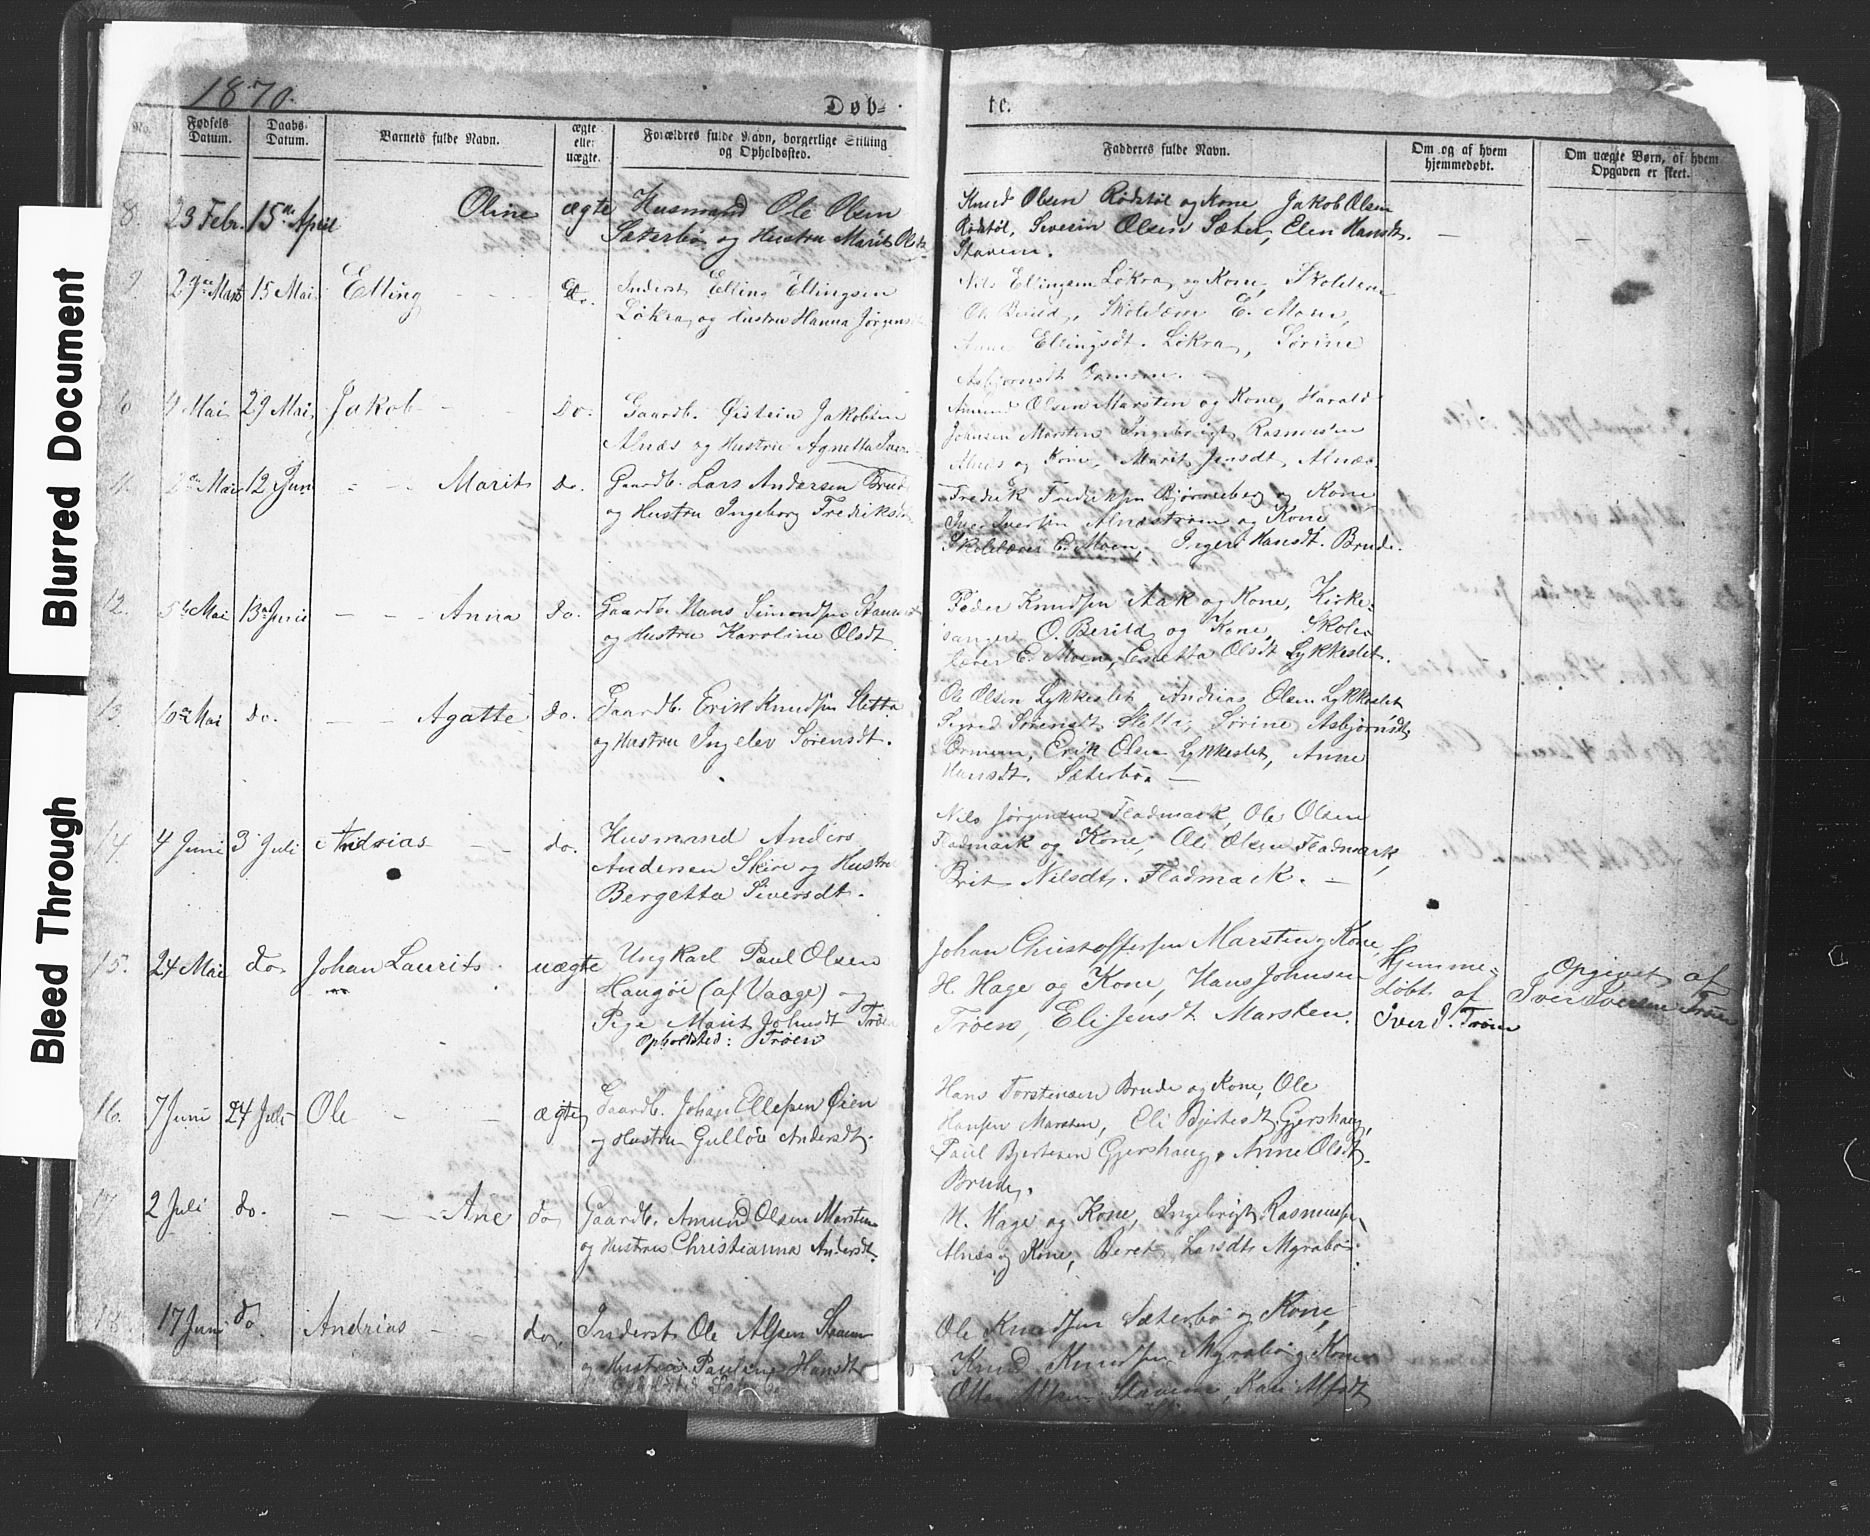 Blurred Document
Bleed Through
1870.
Døb- te.
No.
Fødsels Datum.
Daabs Datum.
Barnets fulde Navn.
ægte eller uægte.
Forældres fulde Navn, borgerlige Stilling og Opholdssted.
Fadderes fulde Navn.
Om og af hvem hjemmedøbt.
Om uægte Børn, af hvem Opgaven er skeet.
8. 23 Febr. 15 April Oline ægte Husmand Ole Olsen
Sæterbø og Hustru Marit Olsdt
Knud Olsen Rødstøl og Kone Jakob Olsen
Rødstøl, Severin Olsen Sæter, Elen Hansdt.
Stavem.
9. 15 Mai Elling Do. Inderst Elling Ellingsen
Løkra og Hustru Hanna Jørgensdt
Nils Ellingsen Løkra og Kone, Skolelærer
O. Berild, Skolelærer E. Moen,
Anne Ellingsdt. Løkra, Sørine
Asbjørnsdt Ormem.
29 Mai Jakob Do. Gaardb. Øistein Jakobsen
Alnæs og Hustru Agnetta
Amund Olsen Marsten og Kone, Harald
Johnsen Marsten Ingebrigt Rasmusen
Alnæs og Kone, Marit Jensdt. Alnæs.
Mai 12 Juni Marit Do. Gaardb. Lars Andersen Brude
og Hustru Ingeborg Fredriksdt
Fredrik Fredriksen Bjørneberg og Kone
Iver Ivertsen Alnæstrøen og Kone,
Skolelærer E. Moen, Inger Hansdt. Brude.
12. 5te Mai 13de Juni Anna Do. Gaardb. Hans Simondsen Stavem
og Hustru Karoline Olsdt.
Peder Knudsen Aak og Kone, Kirke-
sanger O. Berild og Kone, Skole-
lærer E. Moen, Lykkeslet.
13. Mai do. Agatte do. Gaardb. Erik Knudsen Sletta
og Hustru Ingelev Sørensdt.
Ole Olsen Lykkeslet, Andrias Olsen Lykkeslet
Sigred Sørensdt. Sletta, Sørine Asbjørnsdt.
Ormem, Erik Olsen Lykkeslet, Anne
Hansdt. Sæterbø. —
14. 4 Juni 3 Juli Andrias do. Husmand Anders
Andersen Skire og Hustru
Bergetta Siversdt.
Nils Jørgensen Fladmark, Ole Olsen
Fladmark og Kone, Ole Olsen Fladmark,
Brit Nilsdt. Fladmark. —
15. 24 Mai do Johan Laurits uægte Ungkarl Paul Olsen
Haugøi (af Vaage) og
Pige Marit Johnsdt Trøen
Opholdsted: Trøen
Johan Christoffersen Marsten og Kone,
H. Hage og Kone, Hans Johnsen
Trøen, Eli Jensdt Marsten.
Hjemme-
døbt af
Iver I. Trøen
Opgivet af
Iver Iversen Trøen
16. 7 Juni 24 Juli Ole ægte Gaardb. Johan Ellefsen Øien
og Hustru Gulløv Andersdt.
Hans Torstensen Brude og Kone, Ole
Hansen Marsten, Eli Bjertesdt Gjershaug,
Paul Bjertesen Gjershaug, Anne Olsdt.
Brude.
17. 2 Juli do. Ane do Gaardb. Amund Olsen Marsten
og Hustru Christianna Andersdt.
H. Hage og Kone, Ingebrigt Rasmusen
Alnæs og Kone, Beret Larsdt. Myrabø.
18. 17 Juni do. Andrias do, Inderst Ole Alfsen Stavem
og Hustru Pauline Hansdt
Ole Knudsen Sæterbø og Kone,
Knud Knudsen Myrabø og Kone
Alfsen Stavem, Kari Alfsdt